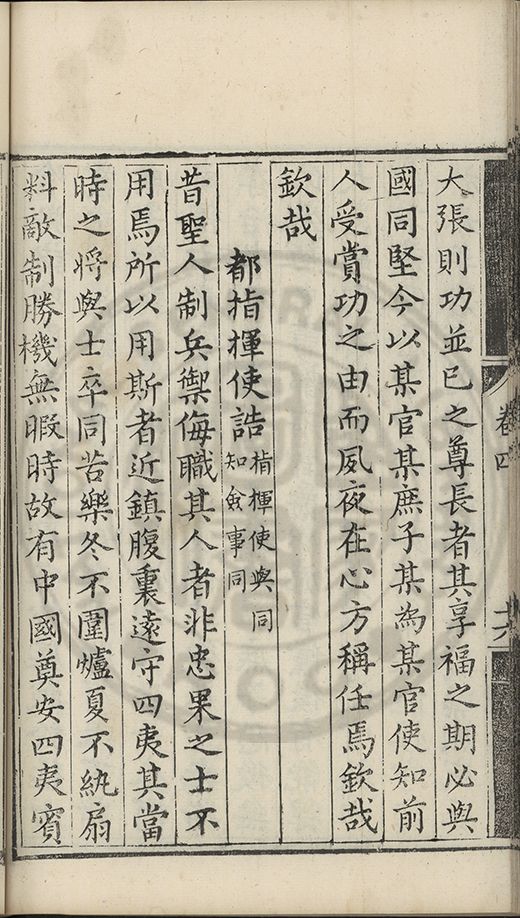 卷四
十六
大張則功並已之尊長者其享福之期必與
國同堅今以某官某庶子某為某官使知前
人受賞功之由而夙夜在心方稱任焉欽哉
欽哉
都指揮使誥指揮使與同
知僉事同
昔聖人制兵禦侮職其人者非忠果之士不
用焉所以用斯者近鎮腹裏遠守四夷其當
時之將與士卒同苦樂冬不圍爐夏不紈扇
料敵制勝機無暇時故有中國奠安四夷賓